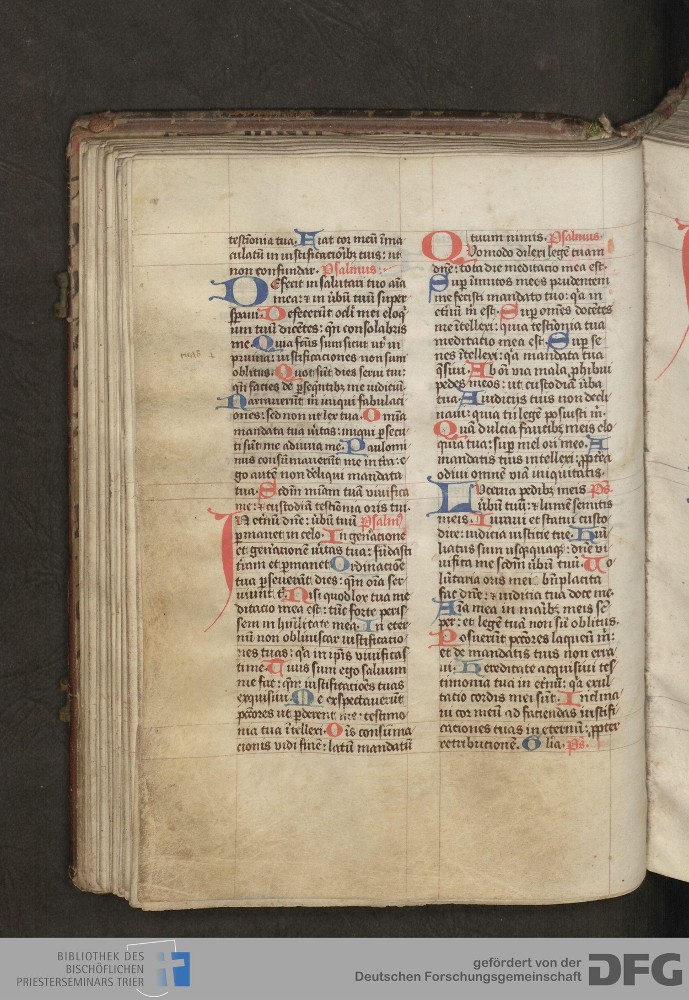 testīonia tua. Fiat cor meū īma
culatū in iustificacōībꝫ tuis: ut
non confundar. Psalmus.
DEfecit in salutari tuo aīa
mea: ⁊ in ūbū tuū super
speraui. Defecerūt oc̄li mei eloq̄
ium tuū dicētes: qn̄ consolab̄is
me. Quia fc̄us sum sicut ut̄ in
pruina: iustificaciones non sum
oblitus. Quot sūt dies serui tui:
qn̄ facies de ꝑseq̄ntibꝫ me iudiciū.
Narrauerūt m̄ iniqui fabulaci
ones: sed non ut lex tua. Omīa
mandata tua ūitas: iniqui ꝑsecu
ti sūt me adiuua me. Paulomi
nus consūmauerūt me in tr̄a: e
go autē non dereliqui mandata
tua. Scdm̄ mīam tuā viuifica
me: ⁊ custodiā testīonia oris tui.
IN et̄nū dn̄e: ūbū tuū Psalm9
ꝑmanet in celo. In gen̄atione
et gen̄ationē ūitas tua: fūdasti
t̄ram et ꝑmanet. Ordinacōe
tua ꝑseuerāt dies: qm̄ oīa ser
uiunt t̄. Nisi quod lex tua me
ditacio mea est: tūc forte perīs
sem in hūilitate mea. In eter
nū non obliuiscar iustificatio
nes tuas: q̄a in ip̄is viuificas
ti me. Tuus sum ego saluum
me fac: qm̄ iustificacōes tuas
exquisiui. Me exspectauerūt
pc̄cores ut ꝑderent me: testimo
nia tua ītellexi. Oīs consuma
cionis vidi finē: latū mandatū
tuum nimis. Psalmus.
QUomodo dilexi legē tuam
dn̄e: tota die meditatio mea est.
Sup̄ inimicos meos prudentem
me fecisti mandato tuo: q̄a in
et̄nū m̄ est. Sup̄ omēs docētes
me ītellexi: quia testīonia tua
meditatio mea est. Sup̄ se
nes ītellexi: q̄a mandata tua
q̄siui. Ab oī via mala ꝓhibui
pedes meos: ut custodiā ūba
tua. A iudiciis tuis non decli
naui: quia tu legē posuisti m̄.
Quā dulcia faucibꝫ meis elo
quia tua: sup̄ mel ori meo. A
mandatis tuis intellexi: ꝓpt̄ea
odiui omnē viā iniquitatis.
LUcerna pedibꝫ meis Ps̄.
ūbū tuū: ⁊ lumē semitis
meis. Iuraui et statui custo
dire: iudicia iusticie tue. Hui
liatus sum usq̄quaqꝫ: dn̄e vi
uifica me scdm̄ ūbū tuū. Uo
lūtaria oris mei bn̄placita
fac dn̄e: ⁊ iudicia tua doce me.
Aīa mea in maībꝫ meis sē
per: et legē tuā non sū oblitus.
Posuerūt pc̄cores laqueū m̄:
et de mandatis tuis non erra
ui. Hereditate acquisiui tes
timonia tua in et̄nū: q̄a exul
tatio cordis mei sūt. Inclina
ui cor meū ad faciendas iustifi
caciones tuas in eternū: ꝓpter
retributionē. Glīa. Ps̄.
BIBLIOTHEK DES
BISCHÖFLICHEN
PRIESTERSEMINARS TRIER
gefördert von der
Deutschen Forschungsgemeinschaft
DFG